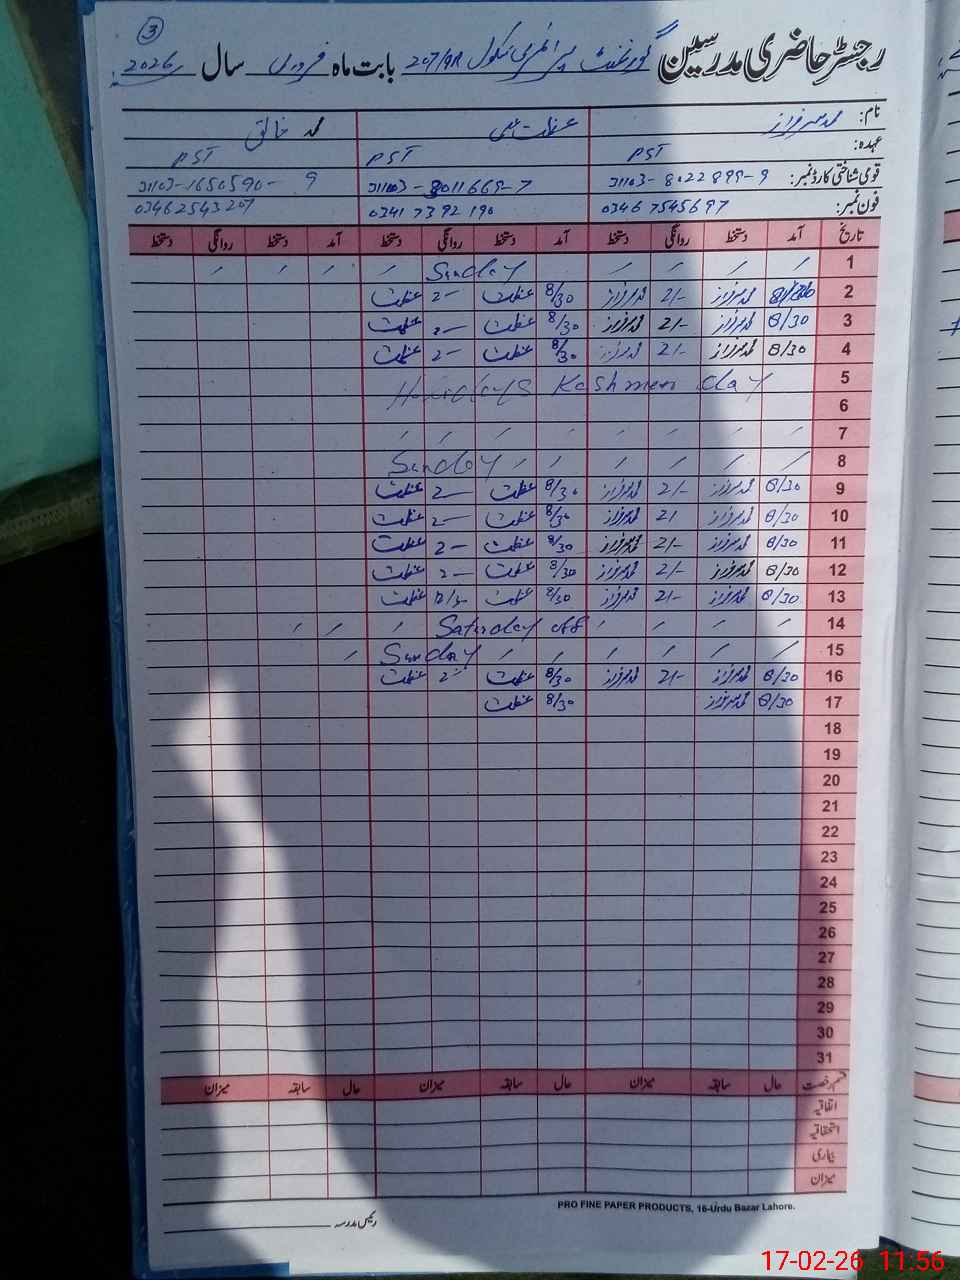 3
رجسٹر حاضری مدرسین گورنمنٹ پرائمری سکول 207/9R بابت ماہ فروری سال 2026
نام: محمد سرفراز عظمت علی محمد خالق
عہدہ: PST PST PST
قومی شناختی کارڈ نمبر: 31103-8022899-9 31103-8011669-7 31103-1650590-9
فون نمبر: 0346 7545697 0341 7392190 03462543207
تاریخ آمد دستخط روانگی دستخط آمد دستخط روانگی دستخط آمد دستخط روانگی دستخط
1 Sunday
2 8/30 محمد سرفراز 2/- محمد سرفراز 8/30 عظمت 2- عظمت
3 8/30 محمد سرفراز 2/- محمد سرفراز 8/30 عظمت 2- عظمت
4 8/30 محمد سرفراز 2/- محمد سرفراز 8/30 عظمت 2- عظمت
5 Holidays Kashmeer day
6
7
8 Sunday
9 8/30 محمد سرفراز 2/- محمد سرفراز 8/30 عظمت 2- عظمت
10 8/30 محمد سرفراز 2/- محمد سرفراز 8/30 عظمت 2- عظمت
11 8/30 محمد سرفراز 2/- محمد سرفراز 8/30 عظمت 2- عظمت
12 8/30 محمد سرفراز 2/- محمد سرفراز 8/30 عظمت 2- عظمت
13 8/30 محمد سرفراز 2/- محمد سرفراز 8/30 عظمت عظمت
14 Saturday off
15 Sunday
16 8/30 محمد سرفراز 2/- محمد سرفراز 8/30 عظمت 2- عظمت
17 8/30 محمد سرفراز 8/30 عظمت
18
19
20
21
22
23
24
25
26
27
28
29
30
31
قسم رخصت حال سابقہ میزان حال سابقہ میزان حال سابقہ میزان
اتفاقیہ
استحقاقیہ
بیماری
میزان
PRO FINE PAPER PRODUCTS, 16-Urdu Bazar Lahore.
رئیس مدرسہ
17-02-26 11:56